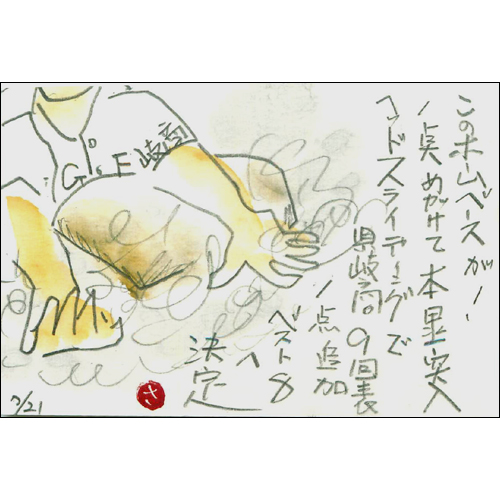 このホームベースが、
1点めがけて本塁突入
ヘッドスライディングで
県岐商 9回表
1点追加
ベスト8
へ
決定
G's F 岐商
7/21
さ